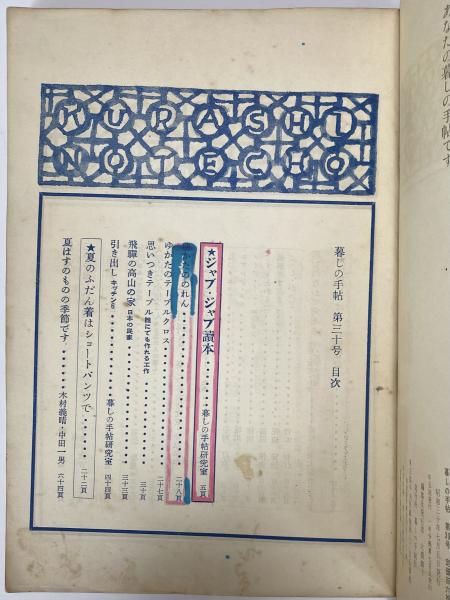 あなたの暮しの手帖です
KURASHI
NO TECHO
暮しの手帖 第三十号 目次
★ジャブ・ジャブ讀本・・・・・暮しの手帖研究室 五頁
のれん・・・・・二十八頁
ゆかたのテーブルクロス・・・・・二十七頁
思いつきテーブル 誰にでも作れる工作・・・・・三十頁
飛驒の高山の家 日本の民家・・・・・三十三頁
引き出し キッチン・・・・・暮しの手帖研究室 四十四頁
★夏のふだん着はショートパンツで・・・・・二十二頁
夏はすのものの季節です・・・・・木村義晴・中田一男 六十四頁
暮しの手帖 第30号